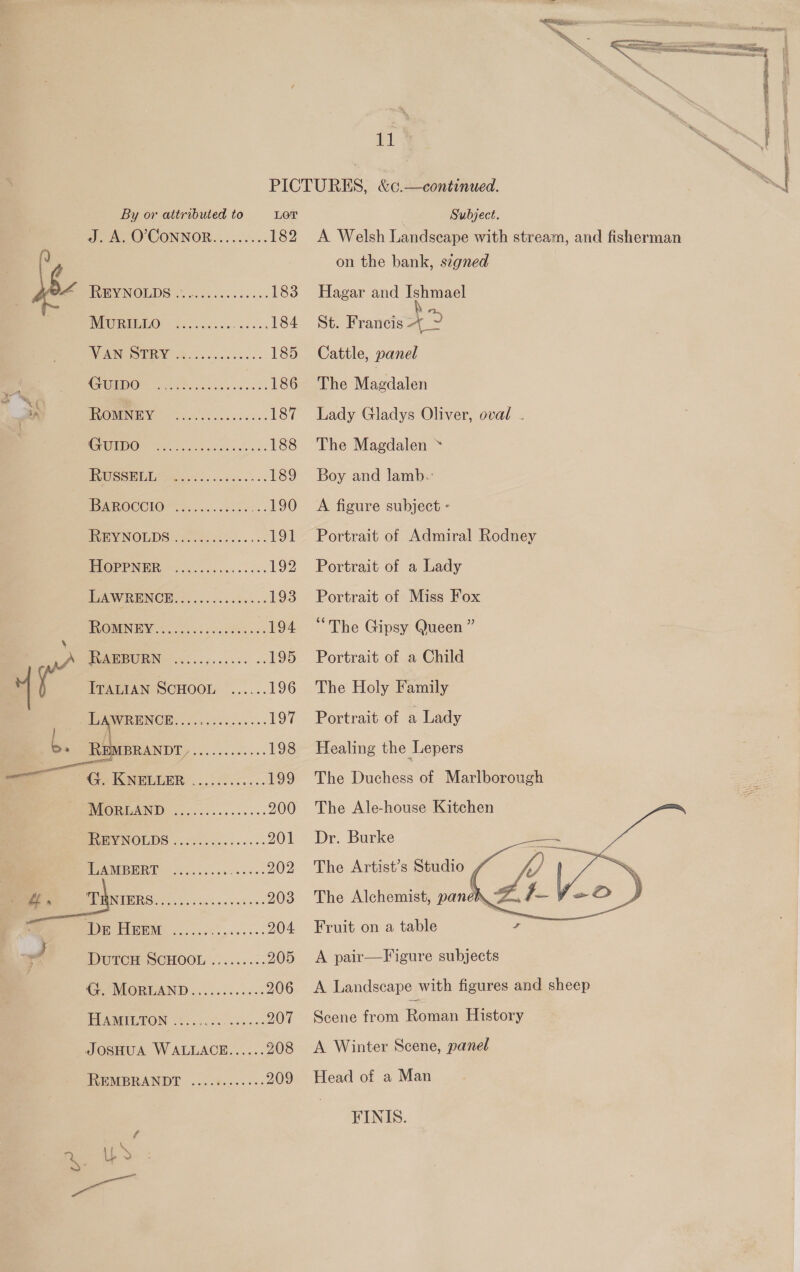 11
PICTURES, &c.—continued.
By or attributed to LOT Subject.
J. A. O'CONNOR.........182 A Welsh Landscape with stream, and fisherman
on the bank, signed
REYNOLDS ..............183 Hagar and Ishmael
MURILLO ..............184 St. Francis
VAN STRY ............. 185 Cattle, panel
GUIDO ..................186 The Magdalen
ROMNEY ...............187 Lady Gladys Oliver, oval
GUIDO ..................188 The Magdalen
RUSSELL ...............189 Boy and lamb.
BAROCCIO ..............190 A figure subject
REYNOLDS ..............191 Portrait of Admiral Rodney
HOPPNER ..............192 Portrait of a Lady
LAWRENCE..............193 Portrait of Miss Fox
ROMNEY..................194 "The Gipsy Queen"
RAEBURN ..............195 Portrait of a Child
ITALIAN SCHOOL ......196 The Holy Family
LAWRENCE..............197 Portrait of a Lady
REMBRANDT.............198 Healing the Lepers
G. KNELLER ............199 The Duchess of Marlborough
MORLAND ...............200 The Ale-house Kitchen
REYNOLDS ..............201 Dr. Burke
LAMBERT ...............202 The Artist's Studio
TENIERS..................203 The Alchemist, panel
DE HEEM ...............204 Fruit on a table
DUTCH SCHOOL .........205 A pair—Figure subjects
G. MORLAND............206 A Landscape with figures and sheep
HAMILTON ..............207 Scene from Roman History
JOSHUA WALLACE......208 A Winter Scene, panel
REMBRANDT ............209 Head of a Man
FINIS.